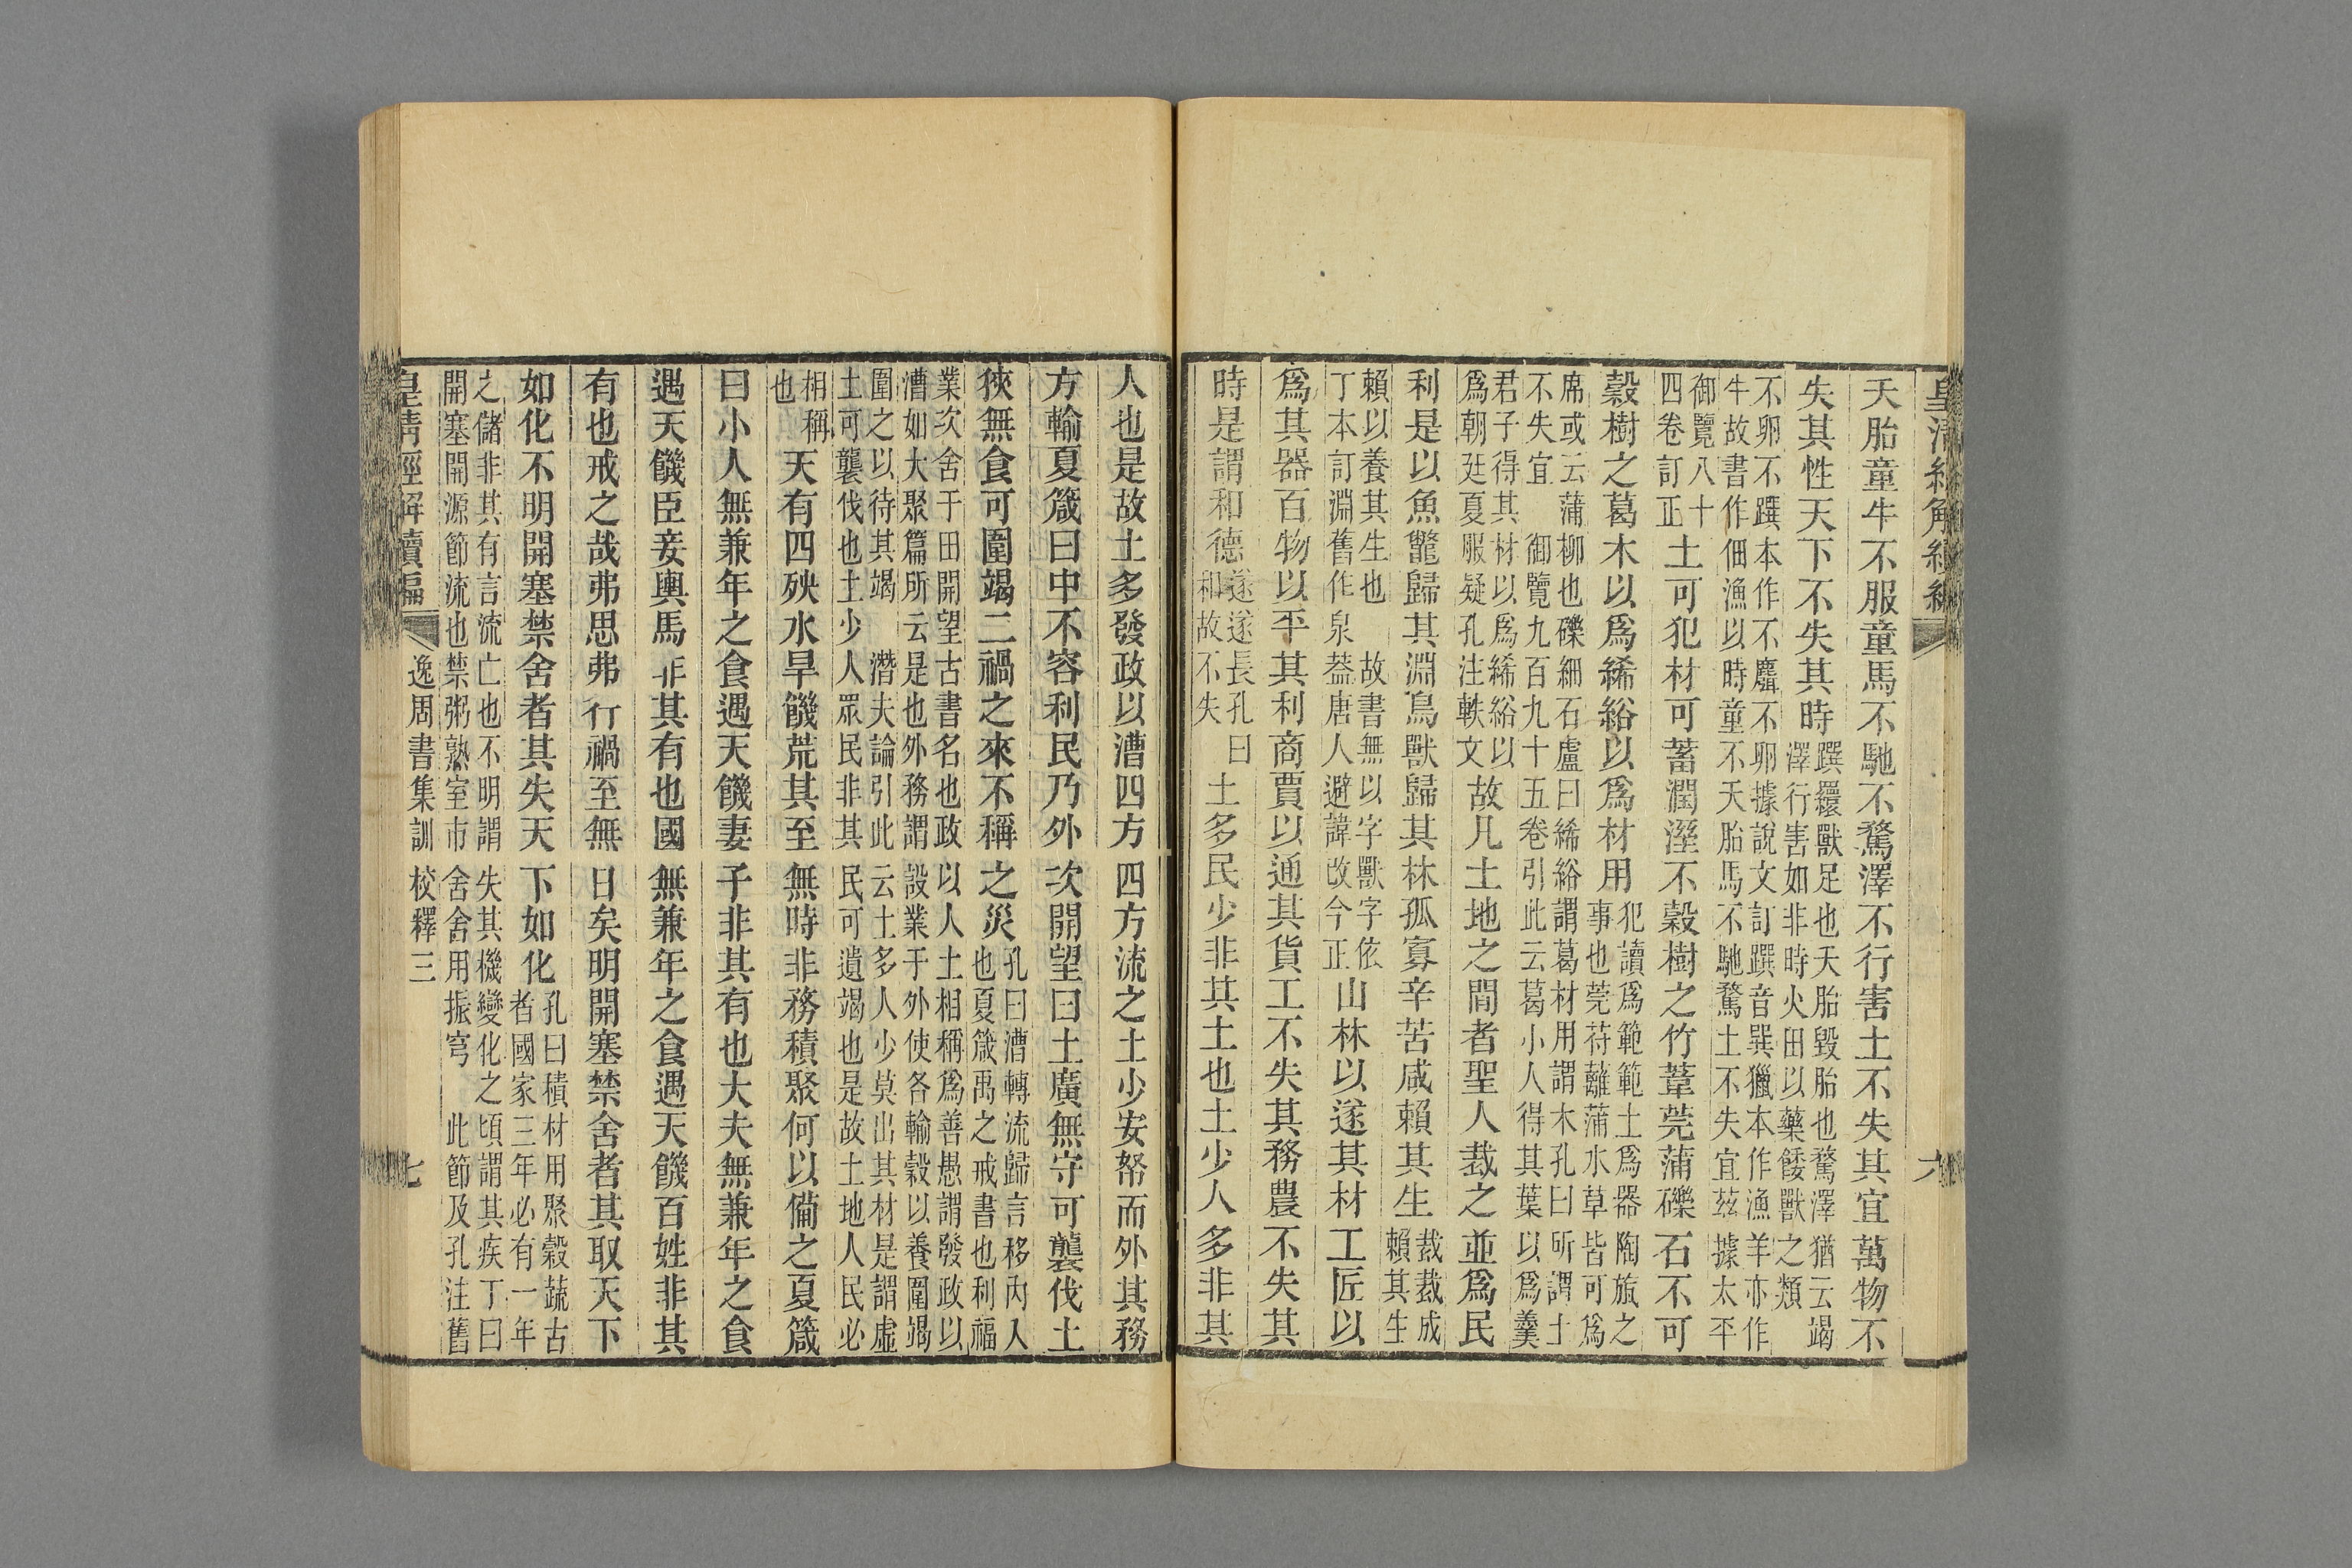 皇清經解續編 六
夭胎童牛不服童馬不馳不騖澤不行害土不失其宜萬物不
失其性天下不失其時
蹼繯獸足也夭胎毀胎也騖澤猶云竭
澤行害如非時火田以藥餧獸之類
不卵不蹼本作不麛不卵據說文訂蹼音巽獵本作漁羊亦作
牛故書作佃漁以時童不夭胎馬不馳騖土不失宜茲據太平
御覽八十
四卷訂正
土可犯材可蓄潤溼不穀樹之竹葦莞蒲礫石不可
穀樹之葛木以爲絺綌以爲材用
犯讀爲範範土爲器陶旊之
事也莞苻蘺蒲水草皆可爲
席或云蒲柳也礫細石盧曰絺綌謂葛材用謂木孔曰所謂土
不失宜 御覽九百九十五卷引此云葛小人得其葉以爲羹
君子得其材以爲絺綌以
爲朝廷夏服疑孔注軼文
故凡土地之閒者聖人裁之並爲民
利是以魚鼈歸其淵鳥獸歸其林孤寡辛苦咸賴其生
裁裁成
賴其生
賴以養其生也 故書無以字獸字依
丁本訂淵舊作泉葢唐人避諱改今正
山林以遂其材工匠以
爲其器百物以平其利商賈以通其貨工不失其務農不失其
時是謂和德
遂遂長孔曰
和故不失
土多民少非其土也土少人多非其
人也是故土多發政以漕四方四方流之土少安帑而外其務
方輸夏箴曰中不容利民乃外次開望曰土廣無守可襲伐土
狹無食可圍竭二禍之來不稱之災
孔曰漕轉流歸言移內人
也夏箴禹之戒書也利福
業次舍于田開望古書名也政以人土相稱爲善愚謂發政以
漕如大聚篇所云是也外務謂設業于外使各輸穀以養圍竭
圍之以待其竭 潛夫論引此云土多人少莫出其材是謂虛
土可襲伐也土少人眾民非其民可遺竭也是故土地人民必
相稱
也
天有四殃水旱饑荒其至無時非務積聚何以備之夏箴
曰小人無兼年之食遇天饑妻子非其有也大夫無兼年之食
遇天饑臣妾輿馬非其有也國無兼年之食遇天饑百姓非其
有也戒之哉弗思弗行禍至無日矣明開塞禁舍者其取天下
如化不明開塞禁舍者其失天下如化
孔曰積材用聚穀蔬古
者國家三年必有一年
之儲非其有言流亡也不明謂失其機變化之頃謂其疾丁曰
開塞開源節流也禁粥熟室市舍舍用振穹 此節及孔注舊
皇清經解續編 逸周書集訓校釋三 七